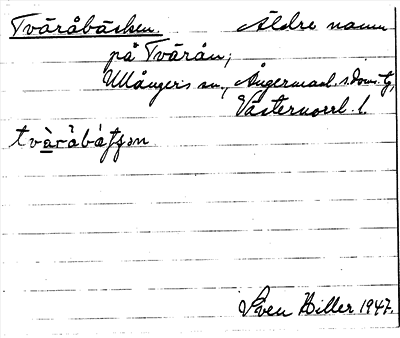 Tväråbäcken. Äldre namn
på Tvärån,
Ullångers sn., Ångermanl. s. doms.,
Västernorrl. l.
tvàråbátʃən
Sven Hiller 1947.